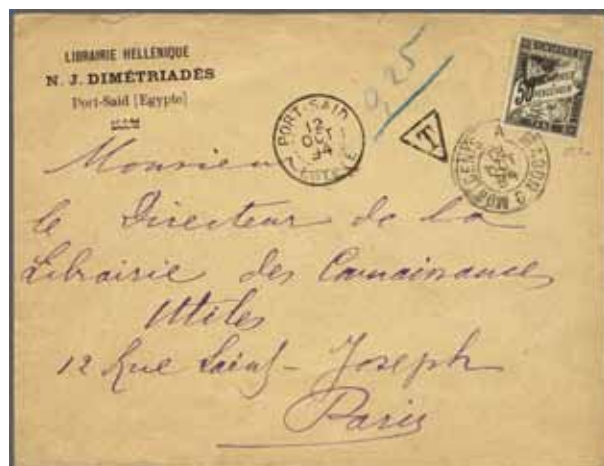 LIBRAIRIE HELLENIQUE
N. J. DIMÉTRIADÈS
Port-Said [Egypte]
0,25
PORT-SAID
12
OCT
94
T
50
Monsieur
le Directeur de la
Librairie des Connaissances
Utiles
12 Rue Saint-Joseph
Paris